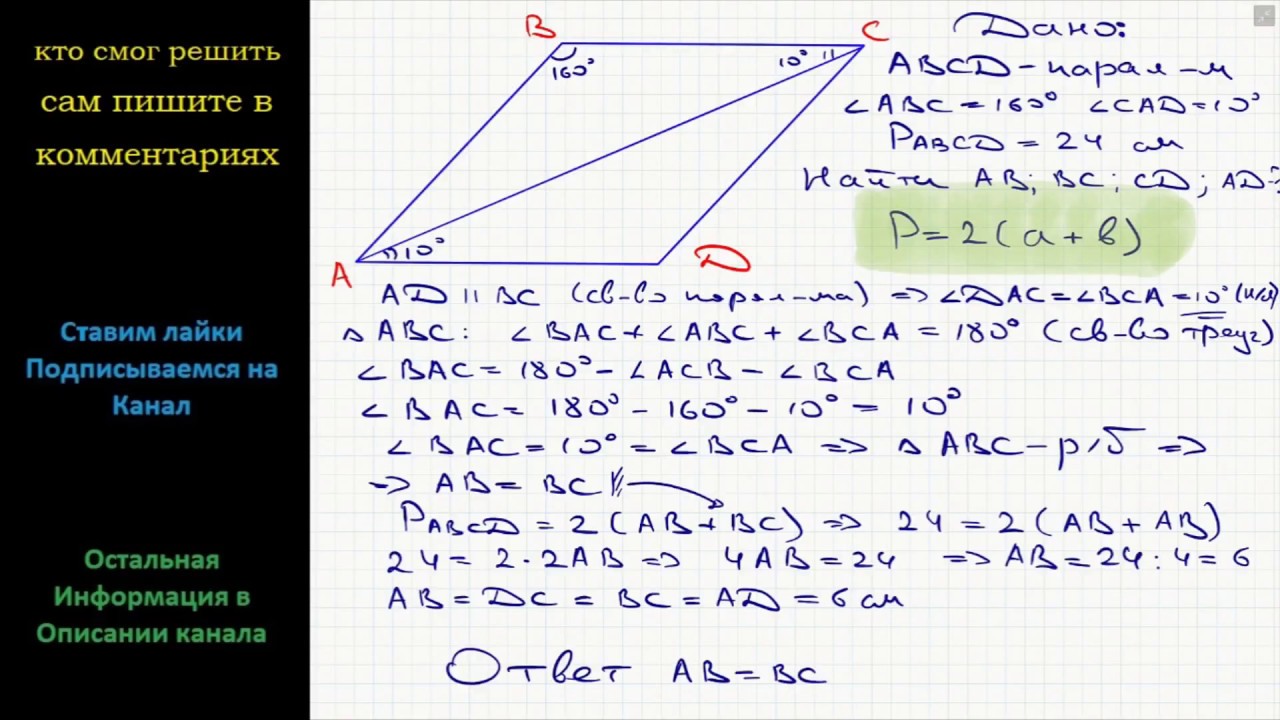 кто смог решить
сам пишите в
комментариях
Ставим лайки
Подписываемся на
Канал
Остальная
Информация в
Описании канала
B
C
160°
10°
A
10°
D
Дано:
ABCD – парал-м
∠ABC = 160° ∠CAD = 10°
PABCD = 24 см
Найти AB; BC; CD; AD-?
P = 2(a + b)
AD || BC (св-во парал-ма) => ∠DAC = ∠BCA = 10° (н/л)
△ABC: ∠BAC + ∠ABC + ∠BCA = 180° (св-во треуг)
∠BAC = 180° – ∠ACB – ∠BCA
∠BAC = 180° – 160° – 10° = 10°
∠BAC = 10° = ∠BCA => △ABC – р/б =>
=> AB = BC
PABCD = 2(AB + BC) => 24 = 2(AB + AB)
24 = 2·2AB => 4AB = 24 => AB = 24 : 4 = 6
AB = DC = BC = AD = 6 см
Ответ AB = BC